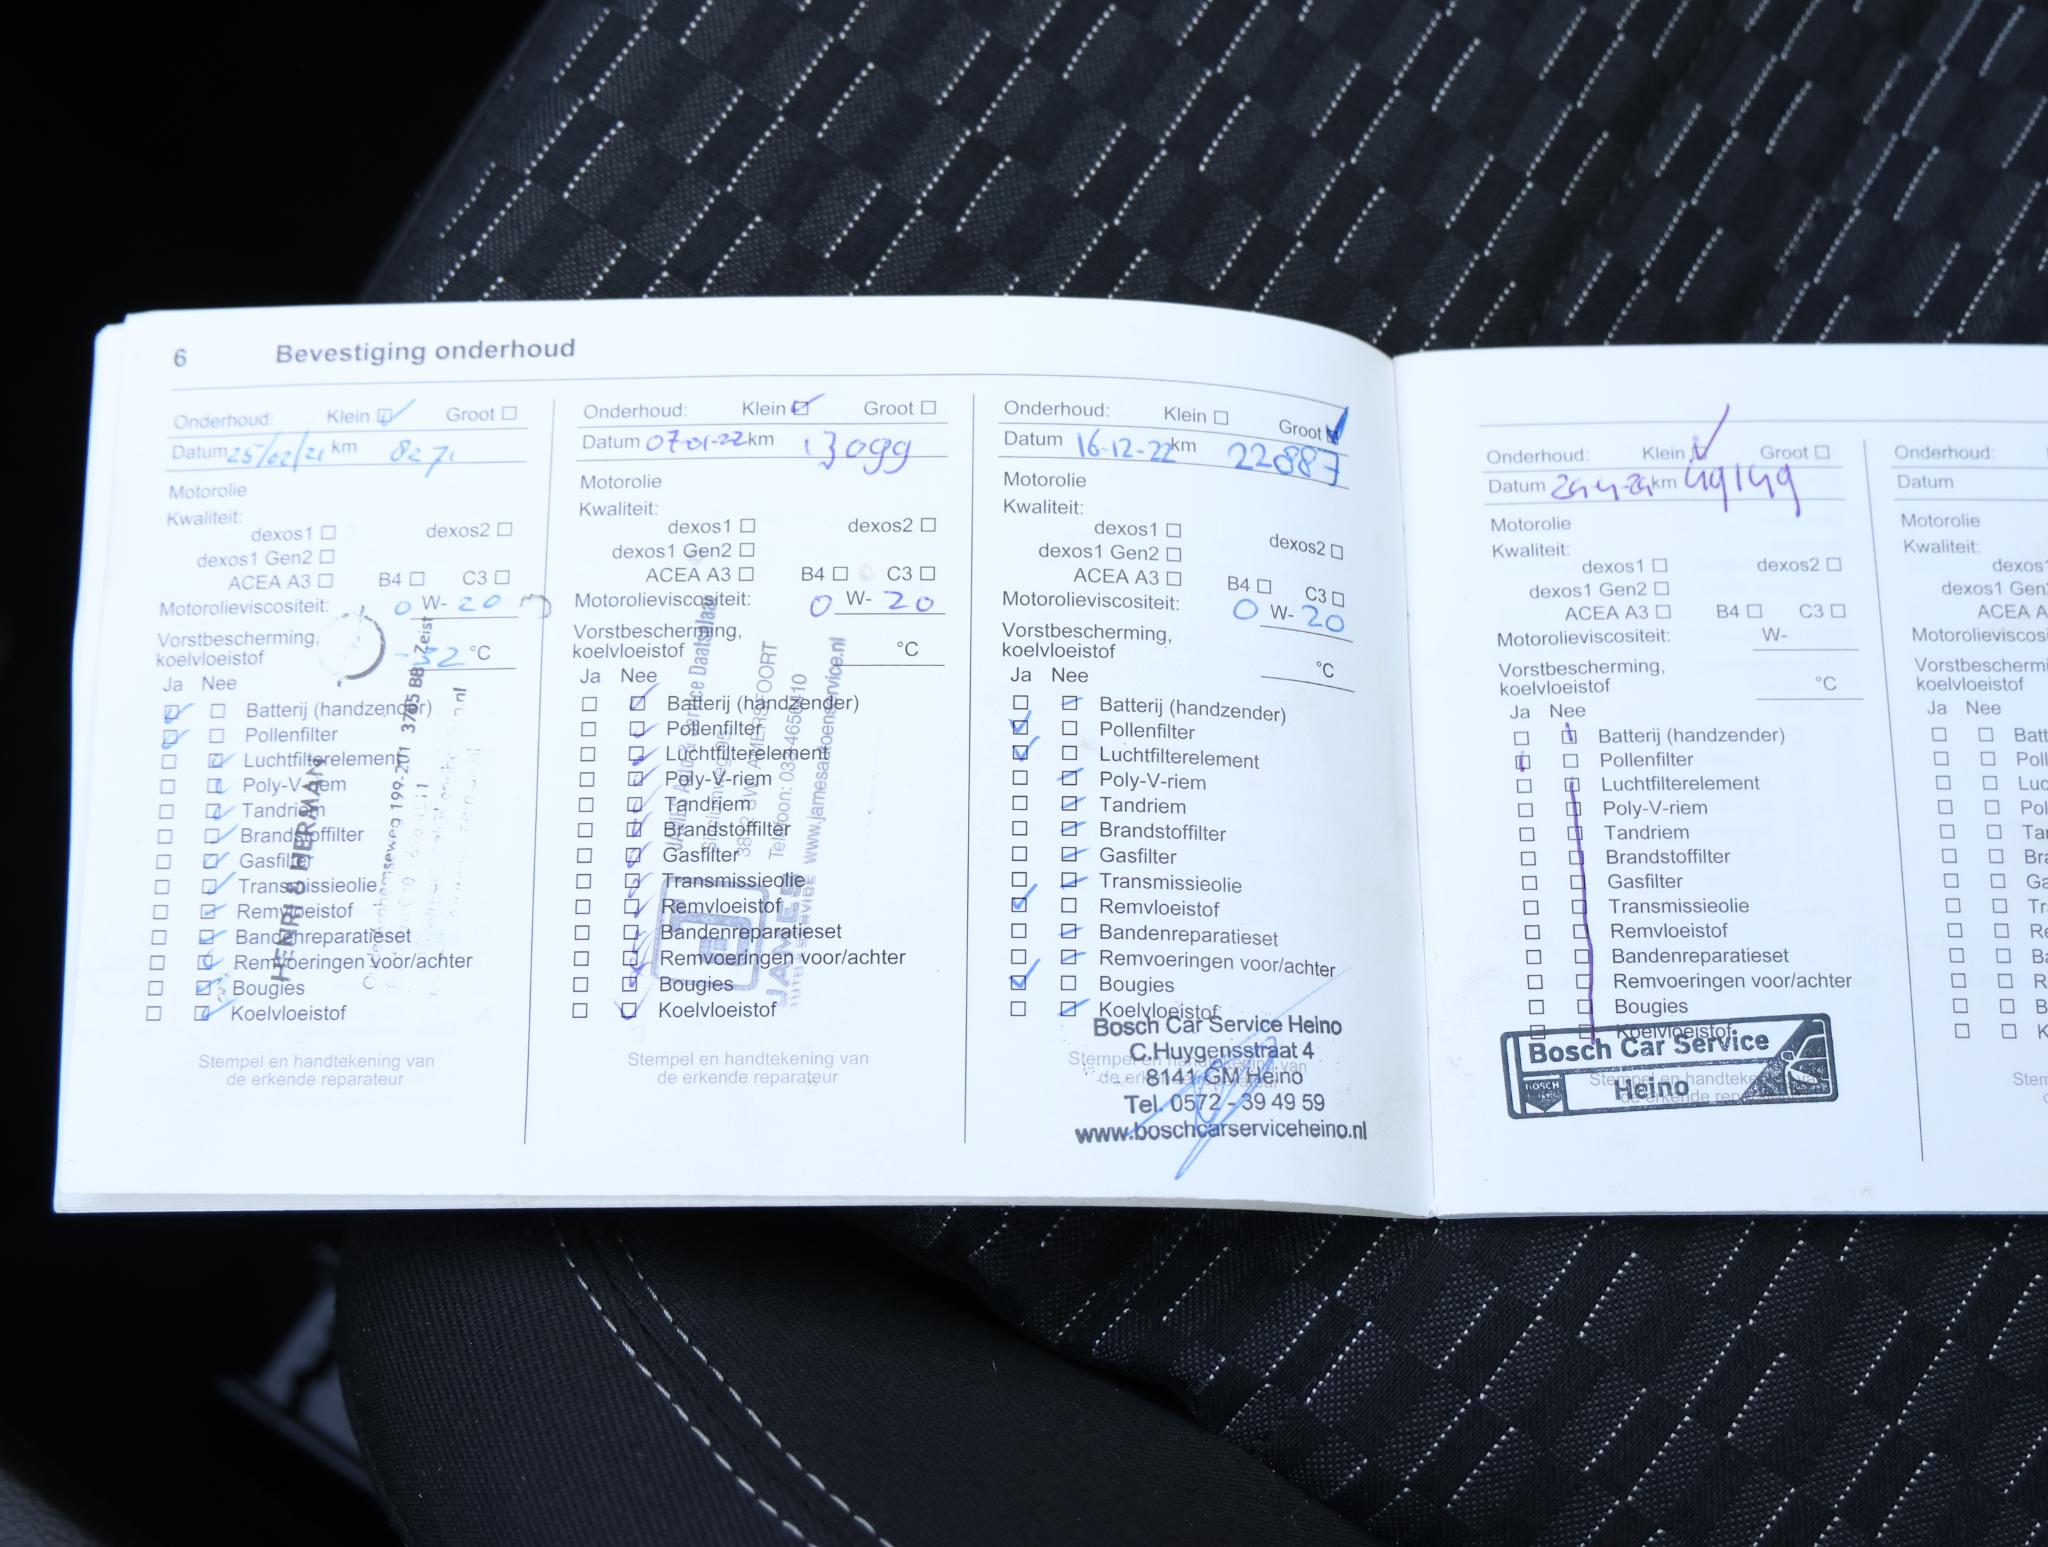 6 Bevestiging onderhoud
Onderhoud: Klein Groot
Datum 25/02/21 km 8271
Motorolie
Kwaliteit:
dexos1 dexos2
dexos1 Gen2
ACEA A3 B4 C3
Motorolieviscositeit: 0 W- 20
Vorstbescherming,
koelvloeistof °C
Ja Nee
Batterij (handzender)
Pollenfilter
Luchtfilterelement
Poly-V-riem
Tandriem
Brandstoffilter
Gasfilter
Transmissieolie
Remvloeistof
Bandenreparatieset
Remvoeringen voor/achter
Bougies
Koelvloeistof
HENRI & HERMAN
199-201 3705 BB Zeist
Stempel en handtekening van
de erkende reparateur
Onderhoud: Klein Groot
Datum 07-01-22 km 13099
Motorolie
Kwaliteit:
dexos1 dexos2
dexos1 Gen2
ACEA A3 B4 C3
Motorolieviscositeit: 0 W- 20
Vorstbescherming,
koelvloeistof °C
Ja Nee
Batterij (handzender)
Pollenfilter
Luchtfilterelement
Poly-V-riem
Tandriem
Brandstoffilter
Gasfilter
Transmissieolie
Remvloeistof
Bandenreparatieset
Remvoeringen voor/achter
Bougies
Koelvloeistof
JAMES
AMERSFOORT
Telefoon: 033-4656410
www.jamesautoenservice.nl
Stempel en handtekening van
de erkende reparateur
Onderhoud: Klein Groot
Datum 16-12-22 km 22887
Motorolie
Kwaliteit:
dexos1 dexos2
dexos1 Gen2
ACEA A3 B4 C3
Motorolieviscositeit: 0 W- 20
Vorstbescherming,
koelvloeistof °C
Ja Nee
Batterij (handzender)
Pollenfilter
Luchtfilterelement
Poly-V-riem
Tandriem
Brandstoffilter
Gasfilter
Transmissieolie
Remvloeistof
Bandenreparatieset
Remvoeringen voor/achter
Bougies
Koelvloeistof
Bosch Car Service Heino
C.Huygensstraat 4
8141 GM Heino
Tel. 0572 - 39 49 59
www.boschcarserviceheino.nl
Onderhoud: Klein Groot
Datum km 49149
Motorolie
Kwaliteit:
dexos1 dexos2
dexos1 Gen2
ACEA A3 B4 C3
Motorolieviscositeit: W-
Vorstbescherming,
koelvloeistof °C
Ja Nee
Batterij (handzender)
Pollenfilter
Luchtfilterelement
Poly-V-riem
Tandriem
Brandstoffilter
Gasfilter
Transmissieolie
Remvloeistof
Bandenreparatieset
Remvoeringen voor/achter
Bougies
Koelvloeistof
Bosch Car Service
BOSCH Heino
Onderhoud:
Datum
Motorolie
Kwaliteit:
Ja Nee